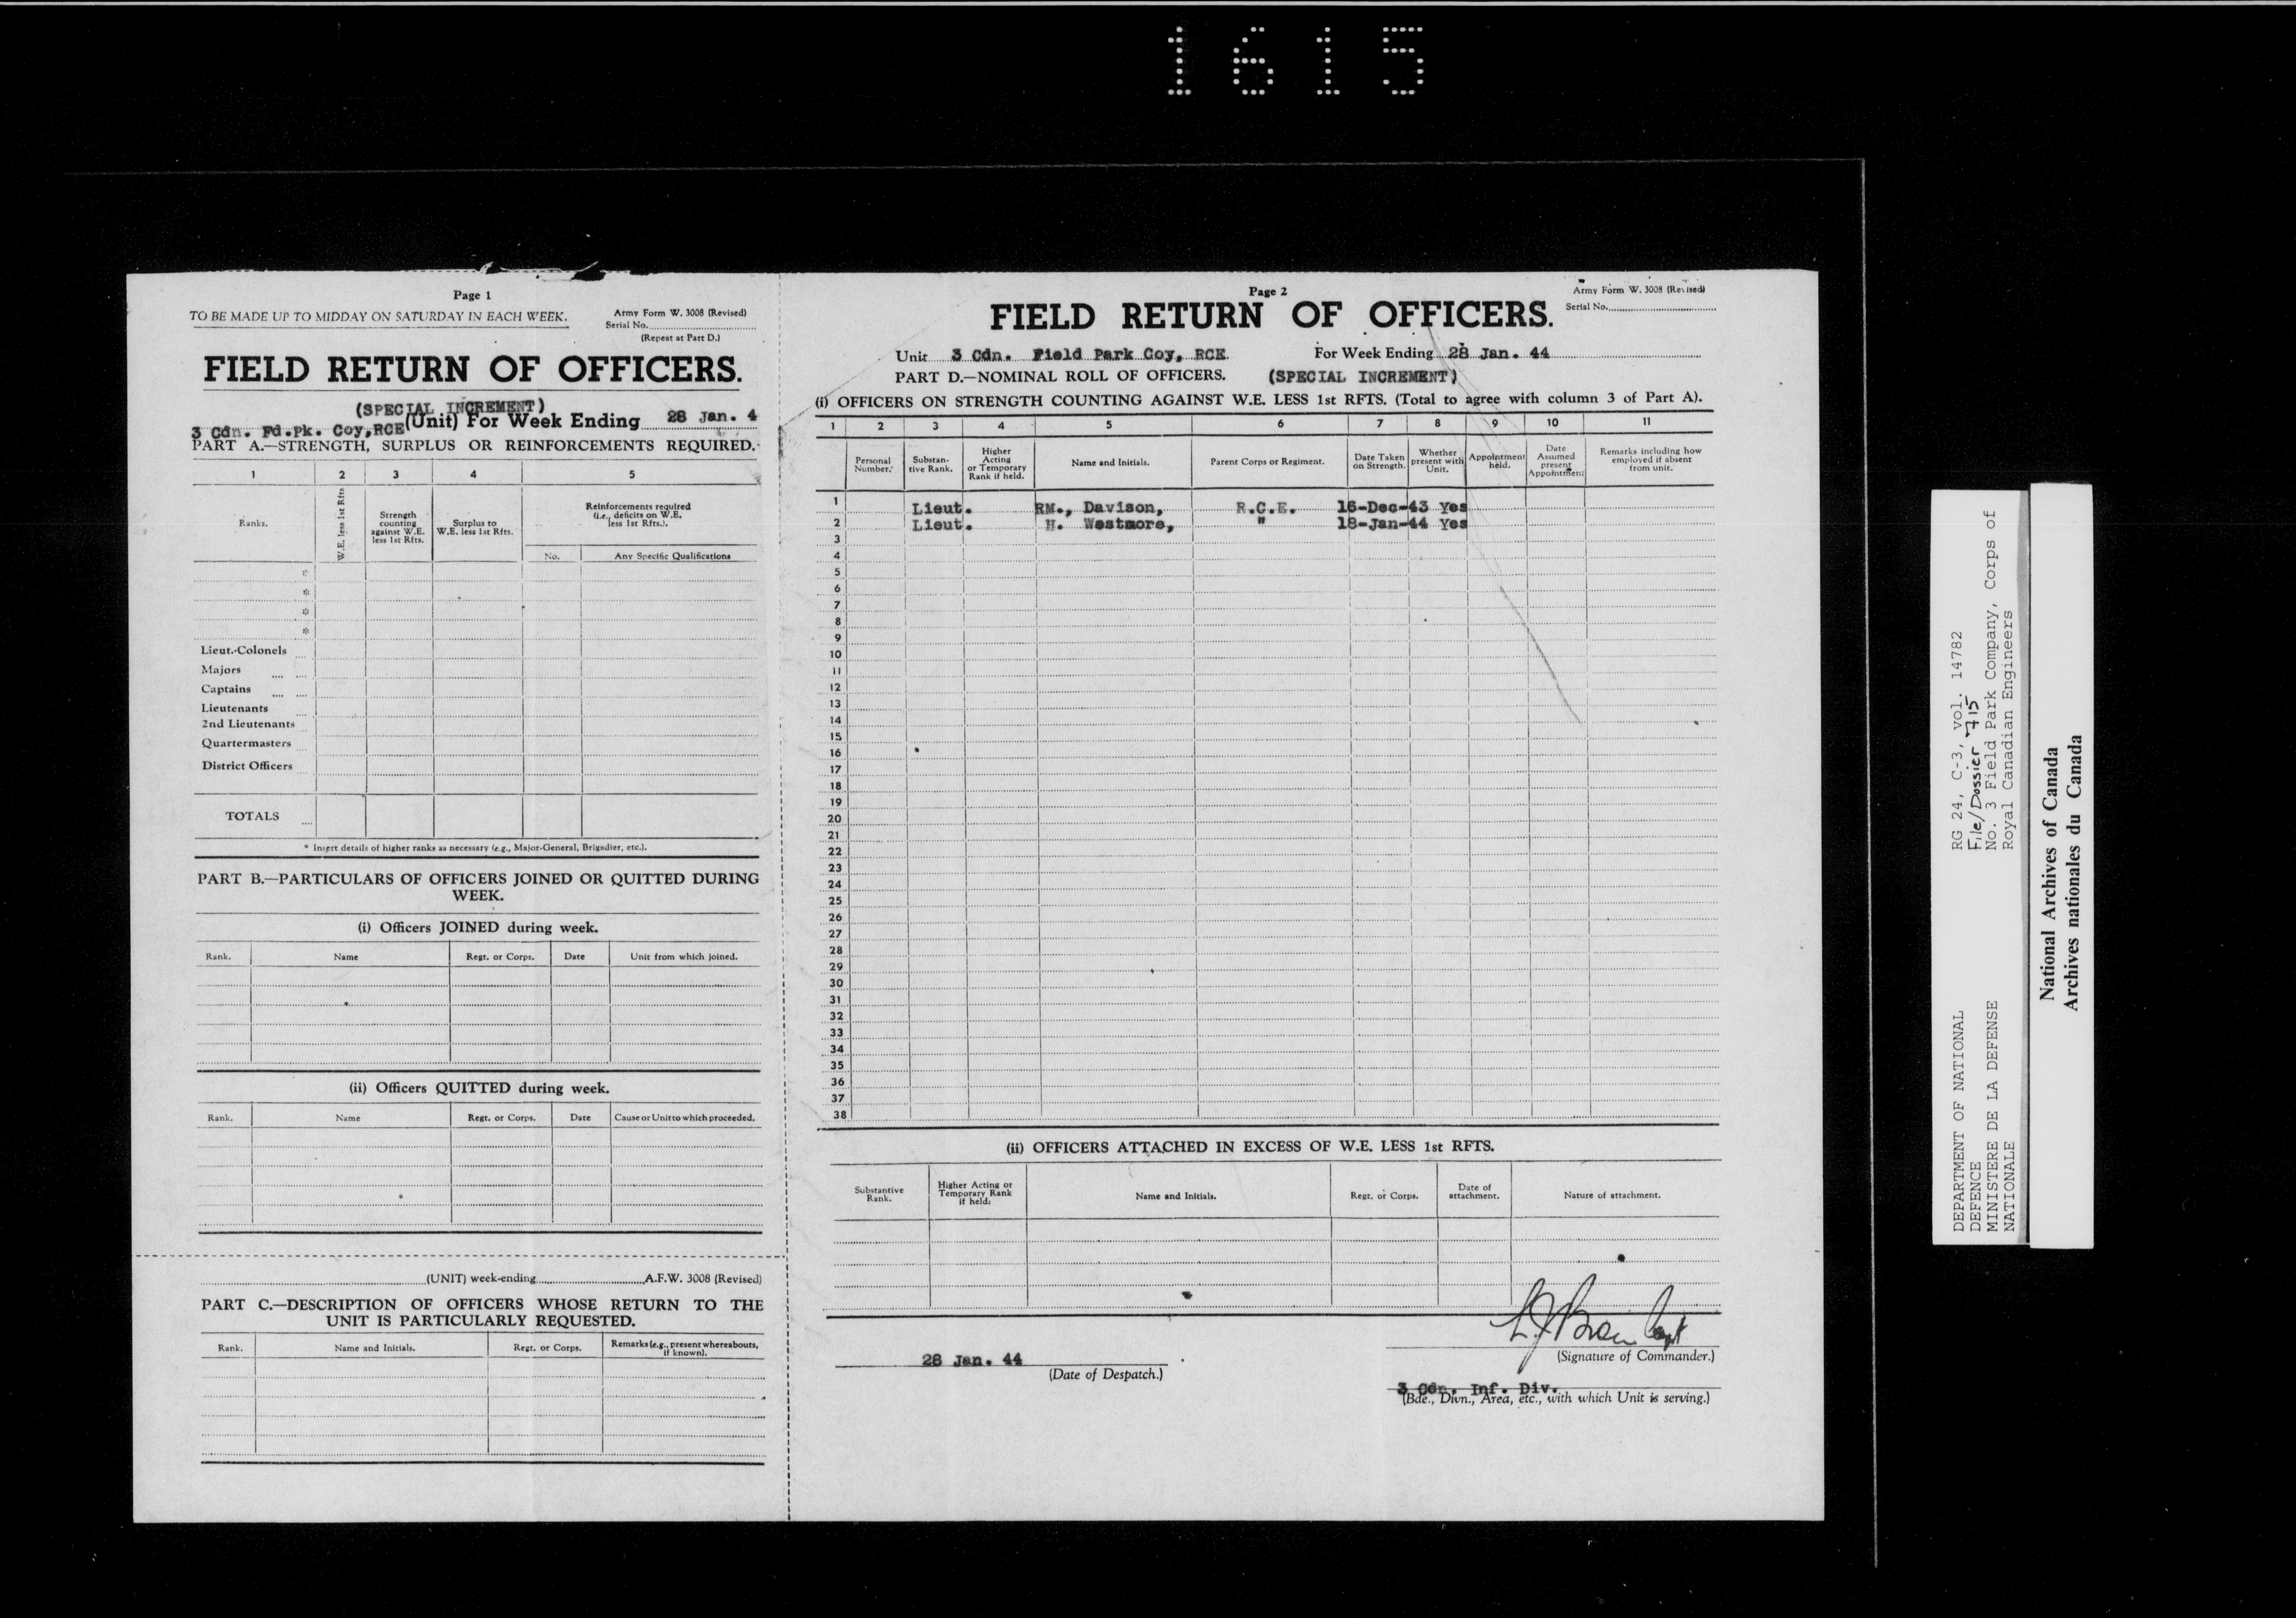 1615
Page 1
TO BE MADE UP TO MIDDAY ON SATURDAY IN EACH WEEK.
Army Form W. 3008 (Revised)
Serial No.
(Repeat at Part D.)
FIELD RETURN OF OFFICERS.
(SPECIAL INCREMENT)
3 Cdn. Fd.Pk. Coy,RCE (Unit) For Week Ending 28 Jan. 4
PART A.—STRENGTH, SURPLUS OR REINFORCEMENTS REQUIRED.
1 2 3 4 5
Ranks.
W.E. less 1st Rfts
Strength counting against W.E. less 1st Rfts.
Surplus to W.E. less 1st Rfts.
Reinforcements required (i.e., deficits on W.E. less 1st Rfts.).
No. Any Specific Qualifications
*
*
*
*
Lieut.-Colonels
Majors
Captains
Lieutenants
2nd Lieutenants
Quartermasters
District Officers
TOTALS
* Insert details of higher ranks as necessary (e.g., Major-General, Brigadier, etc.).
PART B.—PARTICULARS OF OFFICERS JOINED OR QUITTED DURING
WEEK.
(i) Officers JOINED during week.
Rank. Name Regt. or Corps. Date Unit from which joined.
(ii) Officers QUITTED during week.
Rank. Name Regt. or Corps. Date Cause or Unit to which proceeded.
(UNIT) week-ending A.F.W. 3008 (Revised)
PART C.—DESCRIPTION OF OFFICERS WHOSE RETURN TO THE
UNIT IS PARTICULARLY REQUESTED.
Rank. Name and Initials. Regt. or Corps. Remarks (e.g., present whereabouts, if known).
Page 2
Army Form W. 3008 (Revised)
Serial No.
FIELD RETURN OF OFFICERS.
Unit 3 Cdn. Field Park Coy, RCE For Week Ending 28 Jan. 44
PART D.—NOMINAL ROLL OF OFFICERS. (SPECIAL INCREMENT)
(i) OFFICERS ON STRENGTH COUNTING AGAINST W.E. LESS 1st RFTS. (Total to agree with column 3 of Part A).
1 2 3 4 5 6 7 8 9 10 11
Personal Number.
Substantive Rank.
Higher Acting or Temporary Rank if held.
Name and Initials.
Parent Corps or Regiment.
Date Taken on Strength.
Whether present with Unit.
Appointment held.
Date Assumed present Appointment
Remarks including how employed if absent from unit.
1 Lieut. RM., Davison, R.C.E. 16-Dec-43 Yes
2 Lieut. H. Westmore, " 18-Jan-44 Yes
3
4
5
6
7
8
9
10
11
12
13
14
15
16
17
18
19
20
21
22
23
24
25
26
27
28
29
30
31
32
33
34
35
36
37
38
(ii) OFFICERS ATTACHED IN EXCESS OF W.E. LESS 1st RFTS.
Substantive Rank.
Higher Acting or Temporary Rank if held.
Name and Initials.
Regt. or Corps.
Date of attachment.
Nature of attachment.
28 Jan. 44
(Date of Despatch.)
Capt
(Signature of Commander.)
3 Cdn. Inf. Div.
(Bde., Divn., Area, etc., with which Unit is serving.)
DEPARTMENT OF NATIONAL
DEFENCE
MINISTERE DE LA DEFENSE
NATIONALE
RG 24, C-3, vol. 14782
File/Dossier 715
No. 3 Field Park Company, Corps of
Royal Canadian Engineers
National Archives of Canada
Archives nationales du Canada